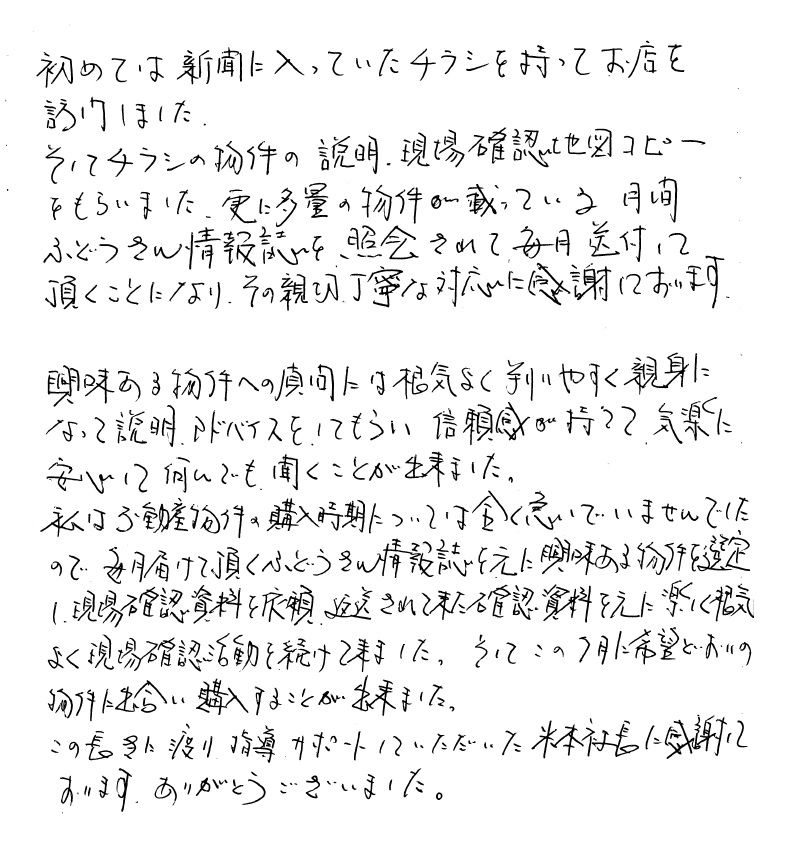 初めては新聞に入っていたチラシを持ってお店を
訪ｹしました.
そしてチラシの物件の説明.現場確認地図コピー
をもらいました.更に多量の物件が載っている月間
ふどうさん情報誌を照会されて毎月送付して
頂くことになり.その親切丁寧な対応に感謝しております.
興味ある物件への質問には根気よく判りやすく親身に
なって説明.アドバイスをしてもらい信頼感が持てて気楽に
安心して何んでも聞くことが出来ました。
私は不動産物件の購入時期については全く急いでいませんでした
ので毎月届けて頂くふどうさん情報誌を元に興味ある物件を選定
し.現場確認資料を依頼.返送されて来た確認資料を元に楽しく根気
よく現場確認活動を続けて来ました。そしてこの7月に希望どおりの
物件に出合い購入することが出来ました。
この長きに渡り指導サポートしていただいた米本社長に感謝して
おります.ありがとうございました。